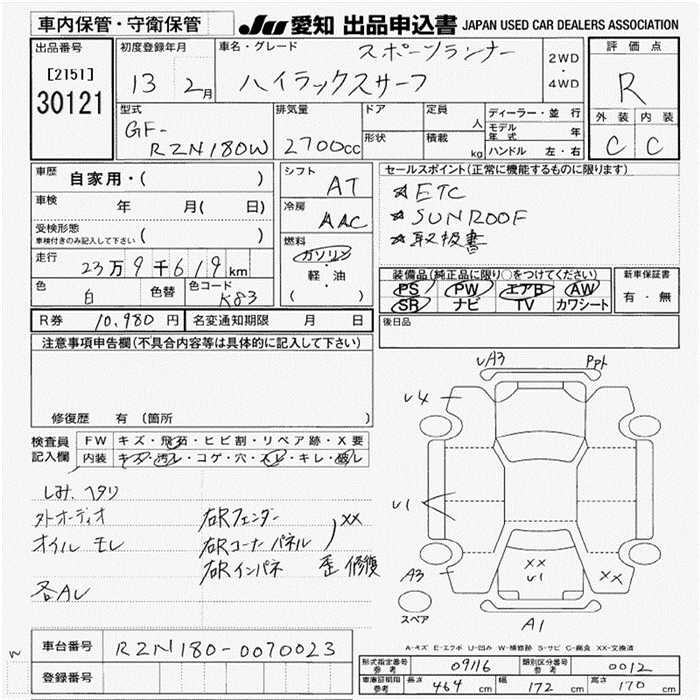 車内保管・守衛保管
JU 愛知 出品申込書 JAPAN USED CAR DEALERS ASSOCIATION
出品番号
[2151]
30121
初度登録年月
13 2月
車名・グレード
スポーツランナー
ハイラックスサーフ
2WD
・
4WD
評価点
R
外装 内装
C C
型式
GF-
RZN180W
排気量
2700cc
ドア
形状
定員
人
積載
kg
ディーラー・並行
モデル年式 年
ハンドル 左・右
車歴
自家用・( )
車検 年 月( 日)
受検形態
車検付きのみ記入して下さい ( )
走行
23万9千619km
色 白
色替
色コード K83
シフト
AT
冷房
AAC
燃料
ガソリン
軽・油
( )
セールスポイント(正常に機能するものに限ります)
☆ETC
☆SUNROOF
☆取扱書
装備品(純正品に限り○をつけてください)
PS PW エアB AW
SR ナビ TV カワシート
新車保証書
有・無
R券 10,980円 名変通知期限 月 日
後日品
注意事項申告欄(不具合内容等は具体的に記入して下さい)
修復歴 有(箇所 )
検査員
記入欄
FW キズ・飛石・ヒビ割・リペア跡・X要
内装 キズ・汚レ・コゲ・穴・スレ・キレ・破レ
シミ、ヘタリ
外オーディオ
オイルモレ
各AL
右Rフェンダー
右Rコーナーパネル
右Rインパネ
XX
歪 修復
UA3
Ppt
U4
U1
A3
スペア
XX
U1
XX
A1
A-キズ E-エクボ U-凹み W-補修跡 S-サビ C-腐食 XX-交換済
車台番号 RZN180-0070023
登録番号
形式指定番号 参考 09116 類別区分番号 参考 0012
車庫証明用 参考 長さ 464cm 幅 172cm 高さ 170cm